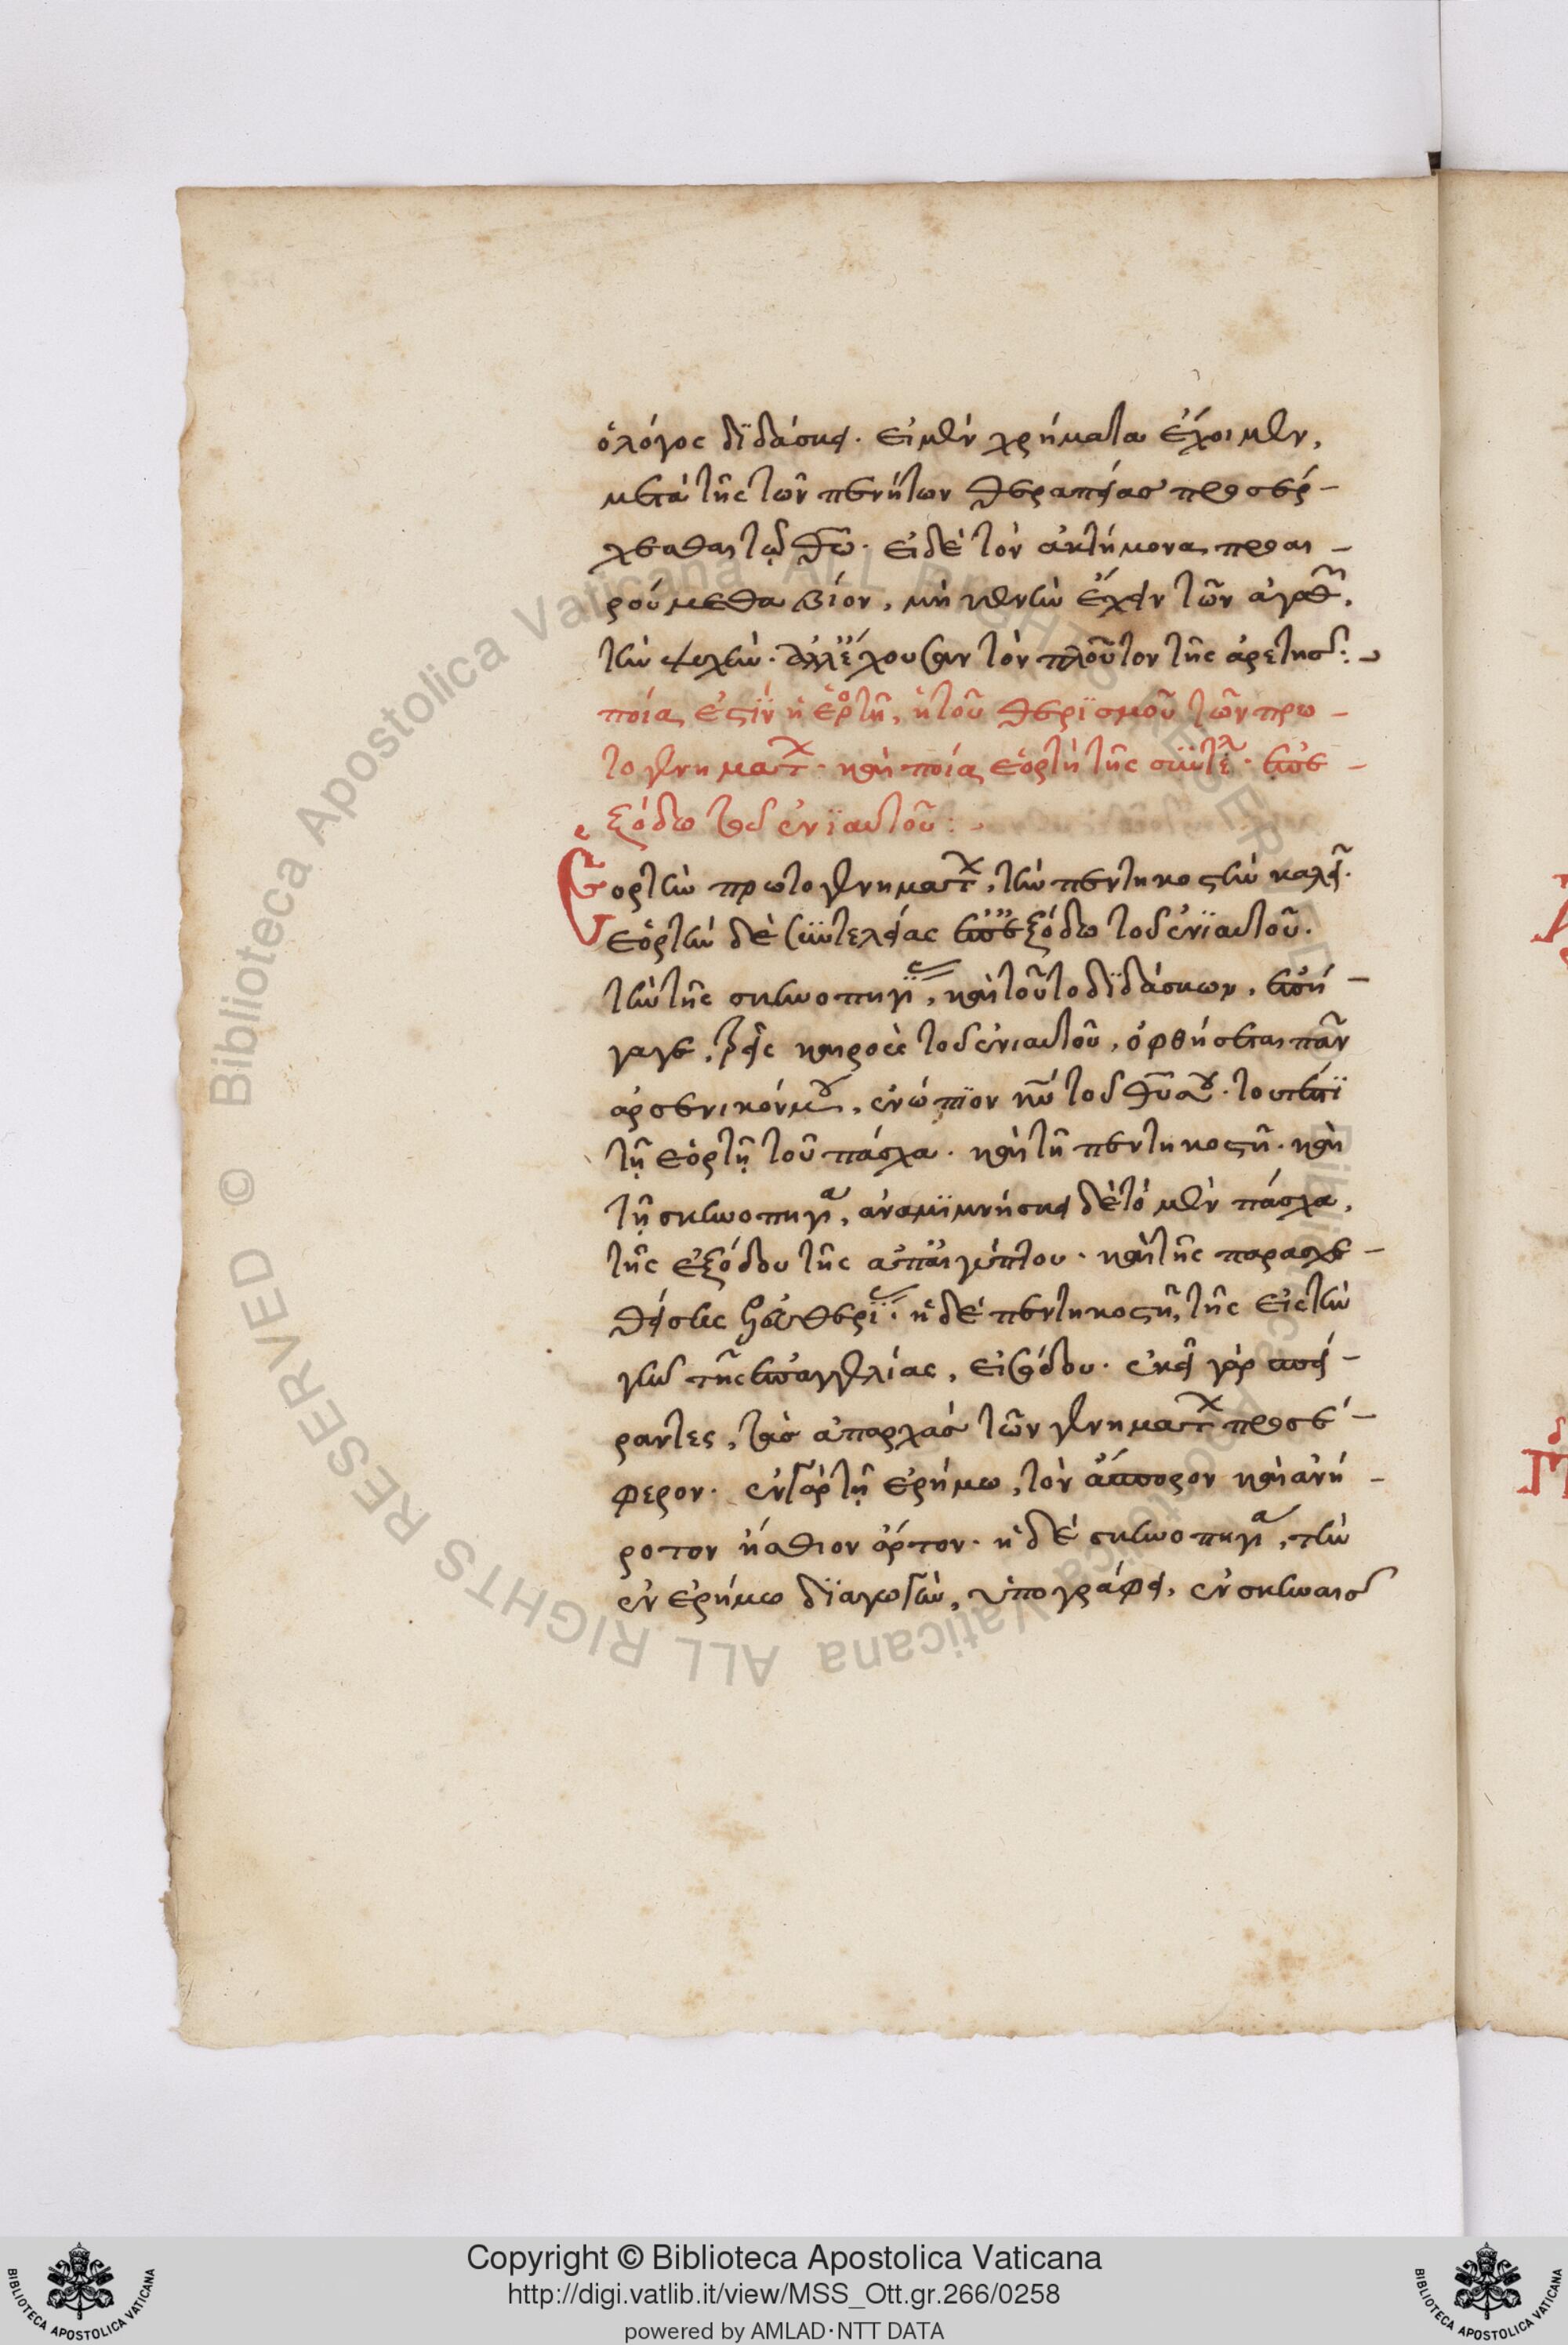 ὁ λόγος διδάσκει· εἰ μὲν χρήματα ἔχοιμεν,
μετὰ τῆς τῶν πενήτων θεραπείας προσέρ-
χεσθαι τῷ θ̅ω̅· εἰ δὲ τὸν ἀκτήμονα προαι-
ρούμεθα βίον, μὴ κενὴν ἔχειν τῶν ἀγαθῶν,
τὴν ψυχὴν· ἀλλ' ἔχουσαν τὸν πλοῦτον τῆς ἀρετῆς:
ποία ἐστὶν ἡ ἑορτὴ, ἡ τοῦ θερισμοῦ τῶν πρω-
τογενημάτων· καὶ ποία ἑορτὴ τῆς συντελείας· ἐπ' ἐ-
ξόδω τοῦ ἐνιαυτοῦ:
Ἑορτὴν πρωτογενημάτων, τὴν πεντηκοστὴν καλεῖ·
ἑορτὴν δὲ συντελείας ἐπ' ἐξόδω τοῦ ἐνιαυτοῦ.
τὴν τῆς σκηνοπηγίας, καὶ τοῦτο διδάσκων, ἐπή-
γαγε, τρεῖς καιροὺς τοῦ ἐνιαυτοῦ, ὀφθήσεται πᾶν
ἀρσενικόν σου, ἐνώπιον κ̅υ̅ τοῦ θ̅υ̅ σου· τουτέστι
τῇ ἑορτῇ τοῦ πάσχα· καὶ τῇ πεντηκοστῇ· καὶ
τῇ σκηνοπηγία, ἀναμιμνήσκει δὲ τὸ μὲν πάσχα,
τῆς ἐξόδου τῆς ἀπ' αἰγύπτου· καὶ τῆς παρασχε-
θείσης ἐλευθερίας· ἡ δὲ πεντηκοστὴ, τῆς εἰς τὴν
γῆν τῆς ἐπαγγελίας, εἰσόδου· ἐκεῖ γὰρ σπεί-
ραντες, τὰς ἀπαρχὰς τῶν γενημάτων προσέ-
φερον· ἐν γὰρ τῇ ἐρήμω, τὸν ἄσπορον καὶ ἀνή-
ροτον ἤσθιον ἄρτον· ἡ δὲ σκηνοπηγία, τὴν
ἐν ἐρήμω διαγωγὴν, ὑπογράφει, ἐν σκηναῖς
Copyright © Biblioteca Apostolica Vaticana
http://digi.vatlib.it/view/MSS_Ott.gr.266/0258
powered by AMLAD·NTT DATA